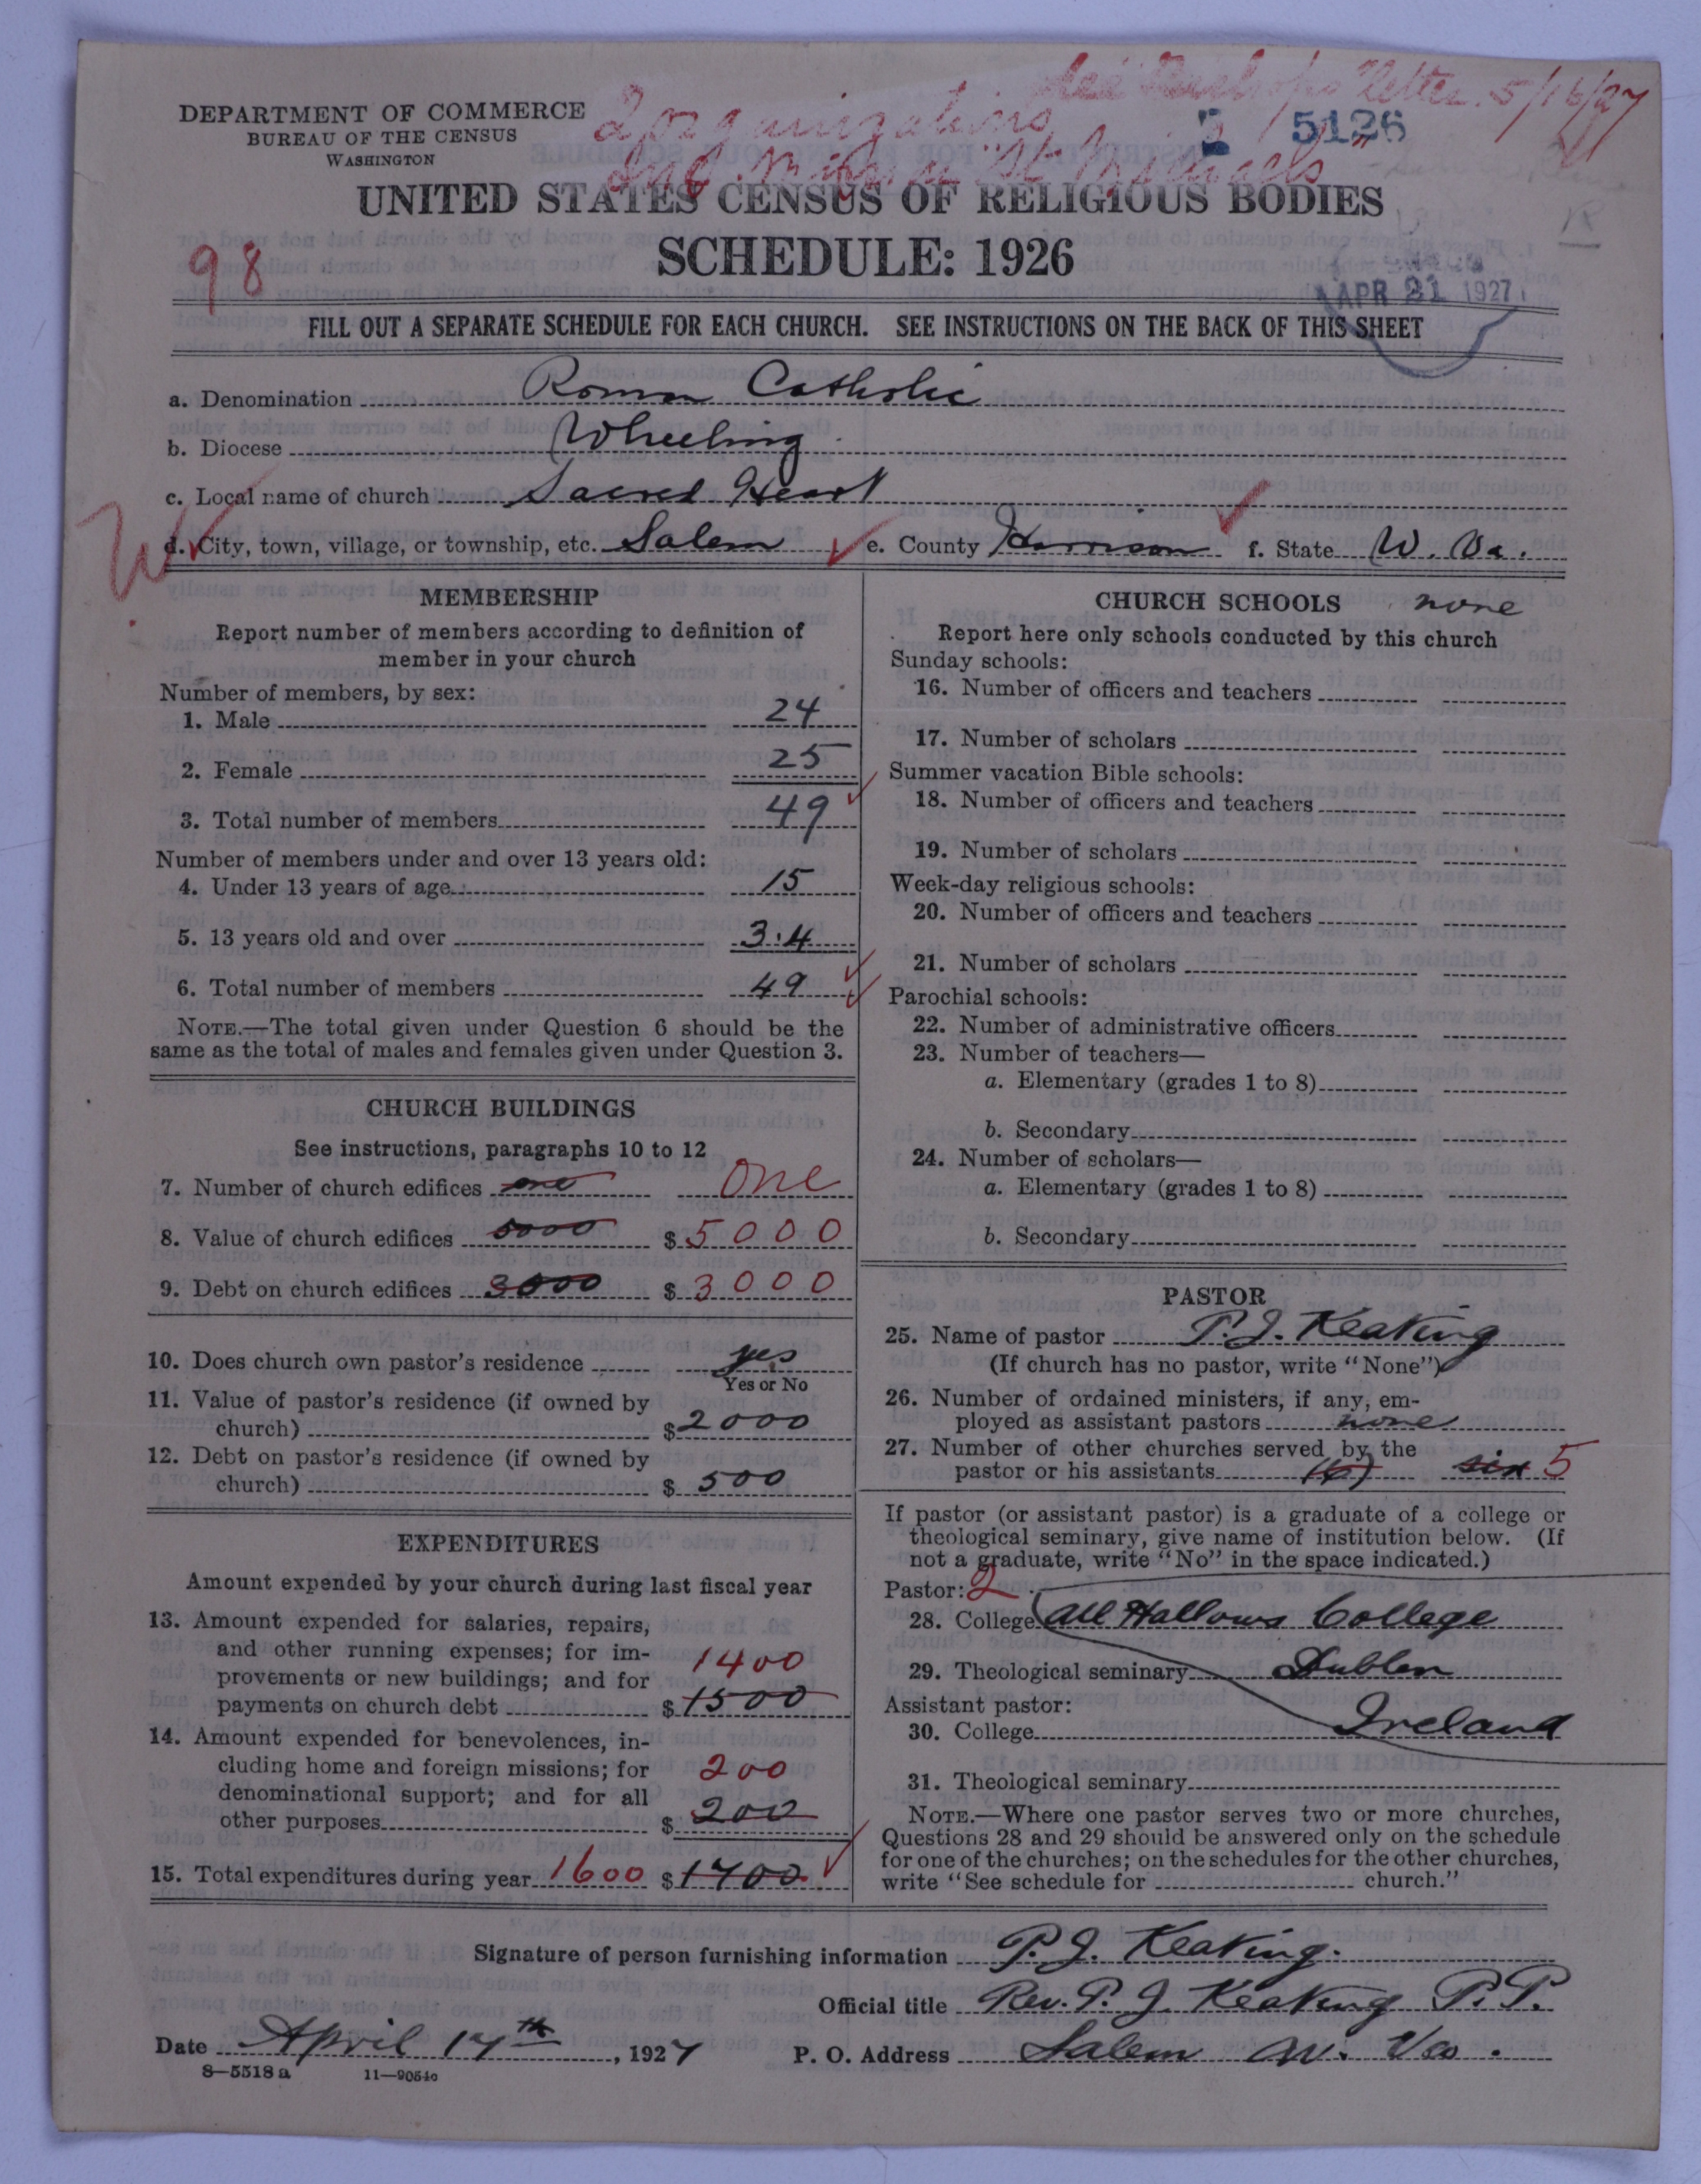 See Bishop's letter 5/16/27
DEPARTMENT OF COMMERCE
BUREAU OF THE CENSUS
WASHINGTON
2 organizations
5126
UNITED STATES CENSUS OF RELIGIOUS BODIES
SCHEDULE: 1926
98
APR 21 1927
FILL OUT A SEPARATE SCHEDULE FOR EACH CHURCH. SEE INSTRUCTIONS ON THE BACK OF THIS SHEET
a. Denomination Roman Catholic
b. Diocese Wheeling
c. Local name of church Sacred Heart
W
d. City, town, village, or township, etc. Salem e. County Harrison f. State W. Va.
MEMBERSHIP
Report number of members according to definition of
member in your church
Number of members, by sex:
1. Male 24
2. Female 25
3. Total number of members 49
Number of members under and over 13 years old:
4. Under 13 years of age 15
5. 13 years old and over 34
6. Total number of members 49
NOTE.—The total given under Question 6 should be the
same as the total of males and females given under Question 3.
CHURCH BUILDINGS
See instructions, paragraphs 10 to 12
7. Number of church edifices one One
8. Value of church edifices 5000 $ 5000
9. Debt on church edifices 3000 $ 3000
10. Does church own pastor's residence yes
Yes or No
11. Value of pastor's residence (if owned by
church) $ 2000
12. Debt on pastor's residence (if owned by
church) $ 500
EXPENDITURES
Amount expended by your church during last fiscal year
13. Amount expended for salaries, repairs,
and other running expenses; for im-
provements or new buildings; and for 1400
payments on church debt $ 1500
14. Amount expended for benevolences, in-
cluding home and foreign missions; for 200
denominational support; and for all
other purposes $ 200
15. Total expenditures during year 1600 $ 1700
CHURCH SCHOOLS none
Report here only schools conducted by this church
Sunday schools:
16. Number of officers and teachers
17. Number of scholars
Summer vacation Bible schools:
18. Number of officers and teachers
19. Number of scholars
Week-day religious schools:
20. Number of officers and teachers
21. Number of scholars
Parochial schools:
22. Number of administrative officers
23. Number of teachers—
a. Elementary (grades 1 to 8)
b. Secondary
24. Number of scholars—
a. Elementary (grades 1 to 8)
b. Secondary
PASTOR
25. Name of pastor P. J. Keating
(If church has no pastor, write "None")
26. Number of ordained ministers, if any, em-
ployed as assistant pastors none
27. Number of other churches served by the
pastor or his assistants (6) six 5
If pastor (or assistant pastor) is a graduate of a college or
theological seminary, give name of institution below. (If
not a graduate, write "No" in the space indicated.)
Pastor: 2
28. College All Hallows College
29. Theological seminary Dublin
Assistant pastor:
30. College Ireland
31. Theological seminary
NOTE.—Where one pastor serves two or more churches,
Questions 28 and 29 should be answered only on the schedule
for one of the churches; on the schedules for the other churches,
write "See schedule for church."
Signature of person furnishing information P. J. Keating.
Official title Rev. P. J. Keating P. P.
Date April 17th, 1927 P. O. Address Salem W. Va.
8—5518a 11—9054c